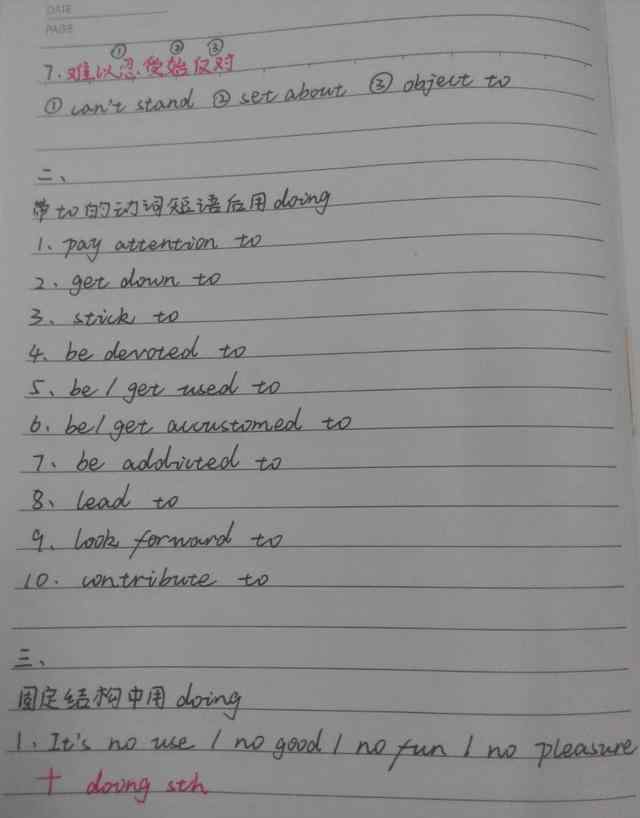 DATE
PAGE
① ② ③
7.难以忍受始反对
① can't stand ② set about ③ object to
二、
带to的动词短语后用doing
1、pay attention to
2、get down to
3、stick to
4、be devoted to
5、be/get used to
6、be/get accustomed to
7、be addicted to
8、lead to
9、look forward to
10.contribute to
三、
固定结构中用doing
1、It's no use / no good / no fun / no pleasure
+ doing sth